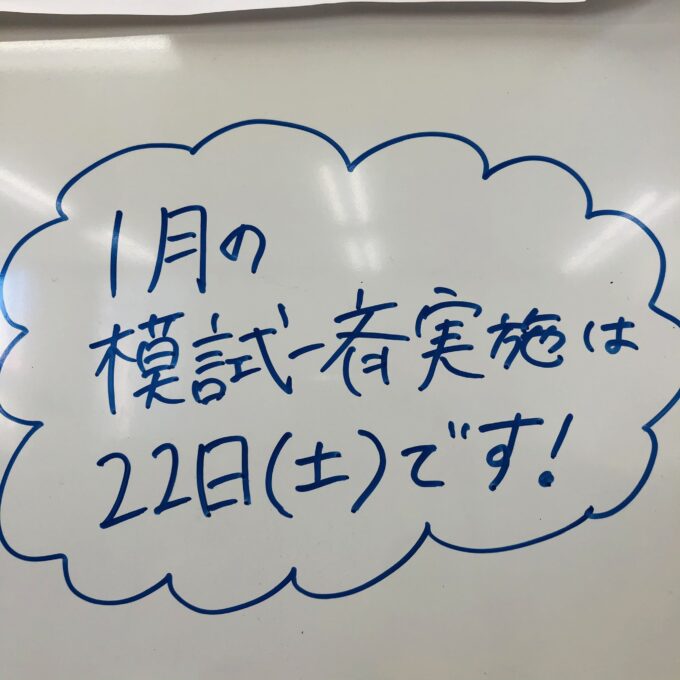 1月の
模試一斉実施は
22日(土)です!